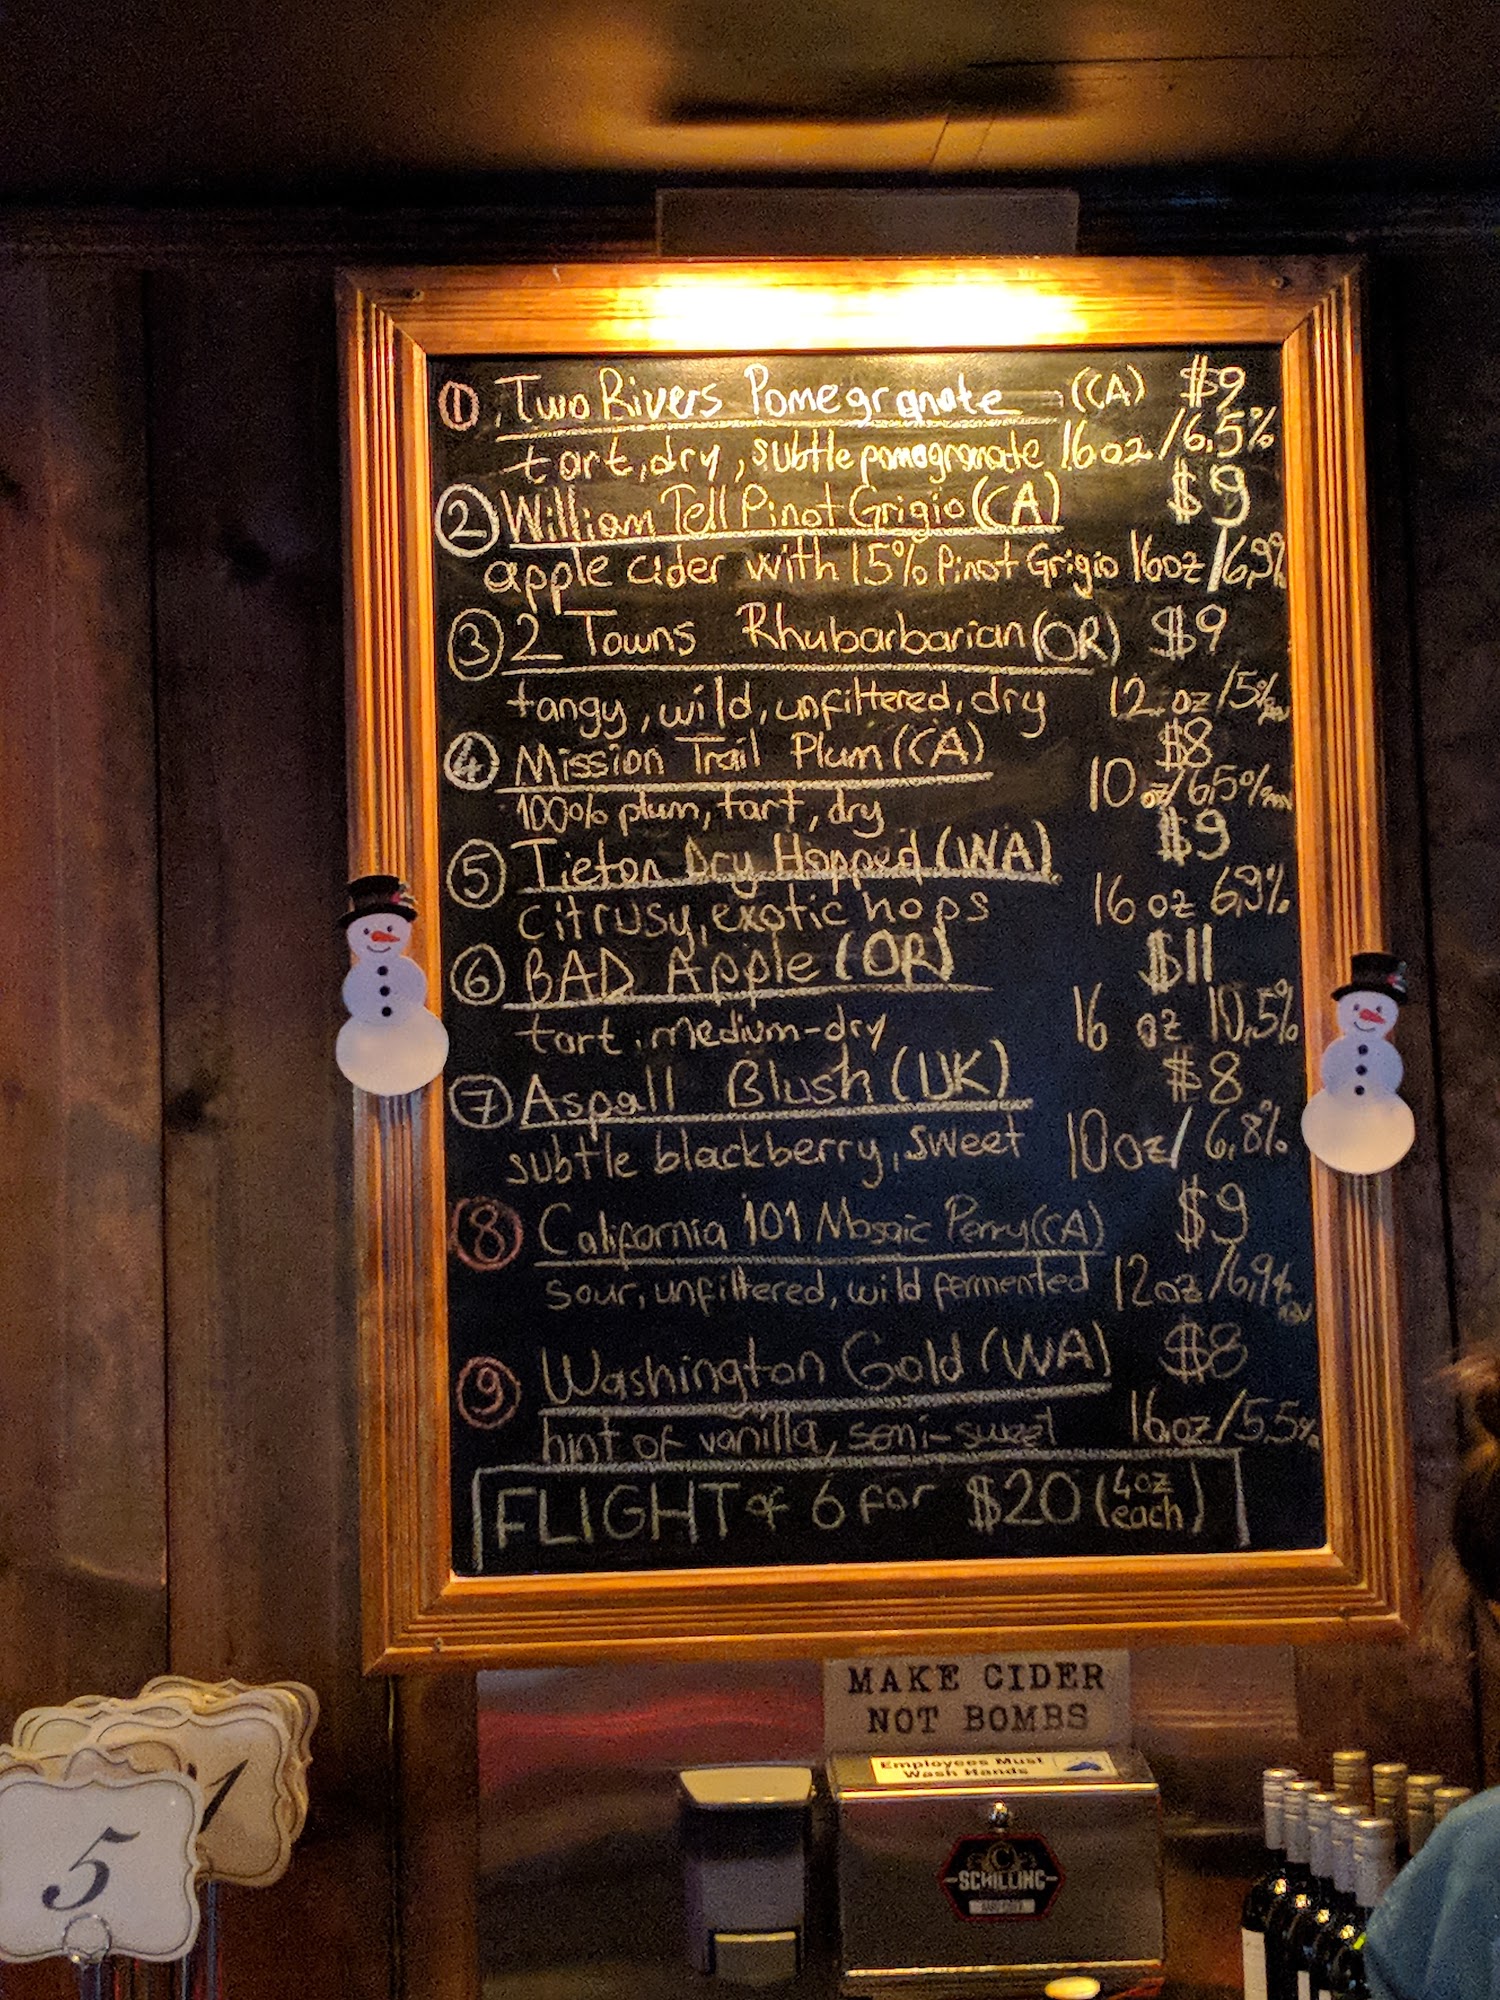 1 Two Rivers Pomegranate (CA) $9
tart, dry, subtle pomagranate 16oz/6.5%
2 William Tell Pinot Grigio (CA) $9
apple cider with 15% Pinot Grigio 16oz/6.9%
3 2 Towns Rhubarbarian (OR) $9
tangy, wild, unfiltered, dry 12 oz/5% ABV
4 Mission Trail Plum (CA) $8
100% plum, tart, dry 10 oz/6.5% ABV
5 Tieton Dry Hopped (WA) $9
citrusy, exotic hops 16 oz 6.9%
6 BAD Apple (OR) $11
tart, medium-dry 16 oz 10.5%
7 Aspall Blush (UK) $8
subtle blackberry, sweet 10oz/6.8%
8 California 101 Mosaic Perry (CA) $9
sour, unfiltered, wild fermented 12oz/6.9% ABV
9 Washington Gold (WA) $8
hint of vanilla, semi-sweet 16oz/5.5%
FLIGHT of 6 for $20 (4oz each)
MAKE CIDER
NOT BOMBS
Employees Must
Wash Hands
C
SCHILLING
5
1